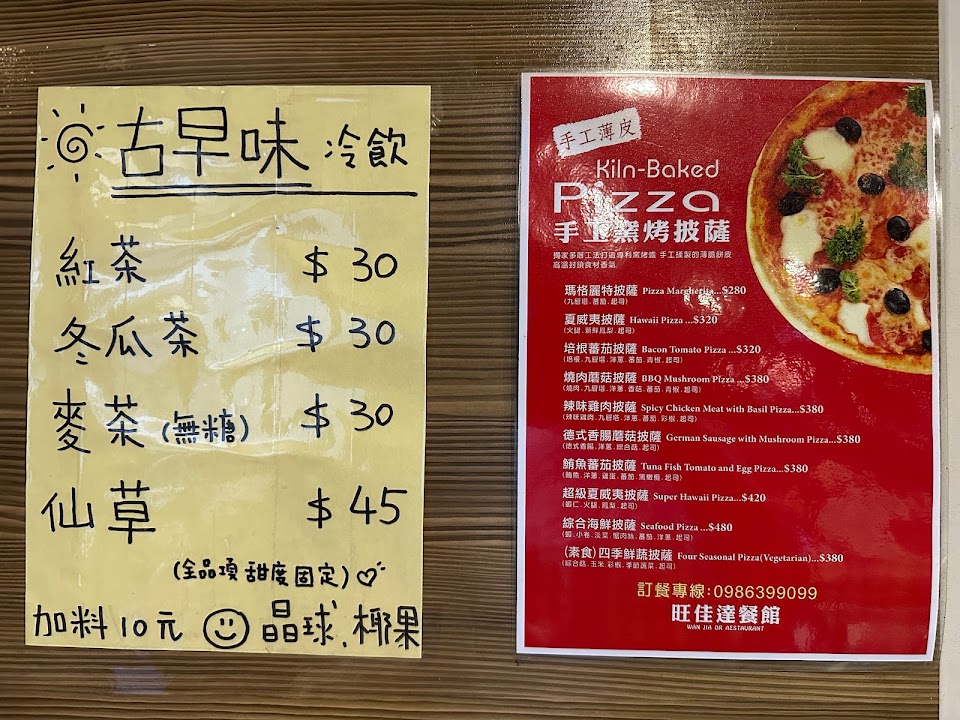 古早味 冷飲
紅茶 $30
冬瓜茶 $30
麥茶(無糖) $30
仙草 $45
(全品項甜度固定)
加料10元 晶球.椰果
手工薄皮
Kiln-Baked
Pizza
手工窯烤披薩
獨家多層工法打造專利窯烤爐 手工揉製的薄脆餅皮
高溫封鎖食材香氣
瑪格麗特披薩 Pizza Margherita...$280
(九層塔.蕃茄.起司)
夏威夷披薩 Hawaii Pizza ...$320
(火腿.新鮮鳳梨.起司)
培根蕃茄披薩 Bacon Tomato Pizza ...$320
(培根.九層塔.洋蔥.蕃茄.青椒.起司)
燒肉蘑菇披薩 BBQ Mushroom Pizza ...$380
(燒肉.九層塔.洋蔥.香菇.蕃茄.青椒.起司)
辣味雞肉披薩 Spicy Chicken Meat with Basil Pizza...$380
(辣味雞肉.九層塔.洋蔥.蕃茄.彩椒.起司)
德式香腸蘑菇披薩 German Sausage with Mushroom Pizza...$380
(德式香腸.洋蔥.綜合菇.起司)
鮪魚蕃茄披薩 Tuna Fish Tomato and Egg Pizza...$380
(鮪魚.洋蔥.雞蛋.蕃茄.黑橄欖.起司)
超級夏威夷披薩 Super Hawaii Pizza...$420
(蝦仁.火腿.鳳梨.起司)
綜合海鮮披薩 Seafood Pizza ...$480
(蝦.小卷.淡菜.蟹肉絲.蕃茄.洋蔥.起司)
(素食)四季鮮蔬披薩 Four Seasonal Pizza(Vegetarian)...$380
(綜合菇.玉米.彩椒.季節蔬菜.起司)
訂餐專線:0986399099
旺佳達餐館
WAN JIA DR AESTAURANT